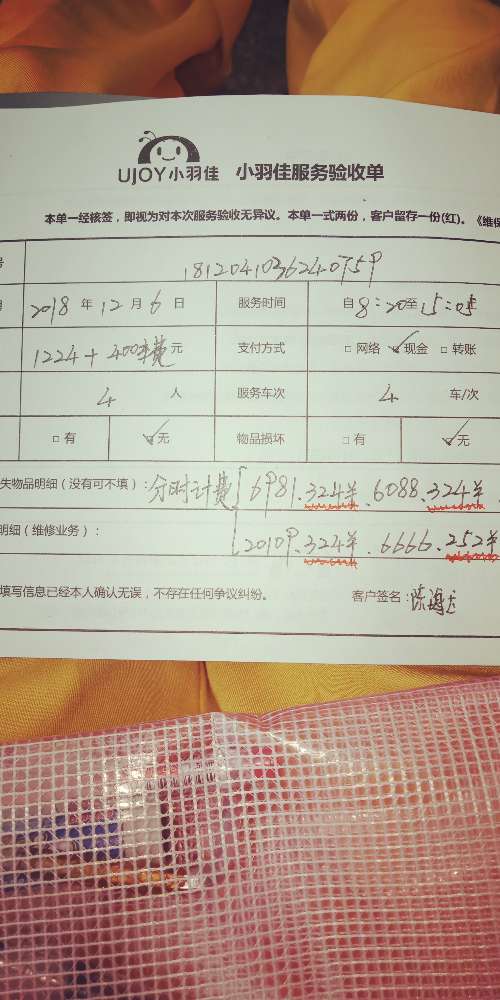 UJOY小羽佳 小羽佳服务验收单
本单一经核签，即视为对本次服务验收无异议。本单一式两份，客户留存一份(红)。《维保
号 181204103624075P
2018 年 12 月 6 日 服务时间 自 8:20 至 15:05
1224+400车费 元 支付方式 □ 网络 ☑ 现金 □ 转账
4 人 服务车次 4 车/次
□ 有 ☑ 无 物品损坏 □ 有 ☑ 无
失物品明细（没有可不填）：分时计费 6P81.324羊.6088.324羊
明细（维修业务）： 2010P.324羊.6666.252羊
填写信息已经本人确认无误，不存在任何争议纠纷。 客户签名：陈